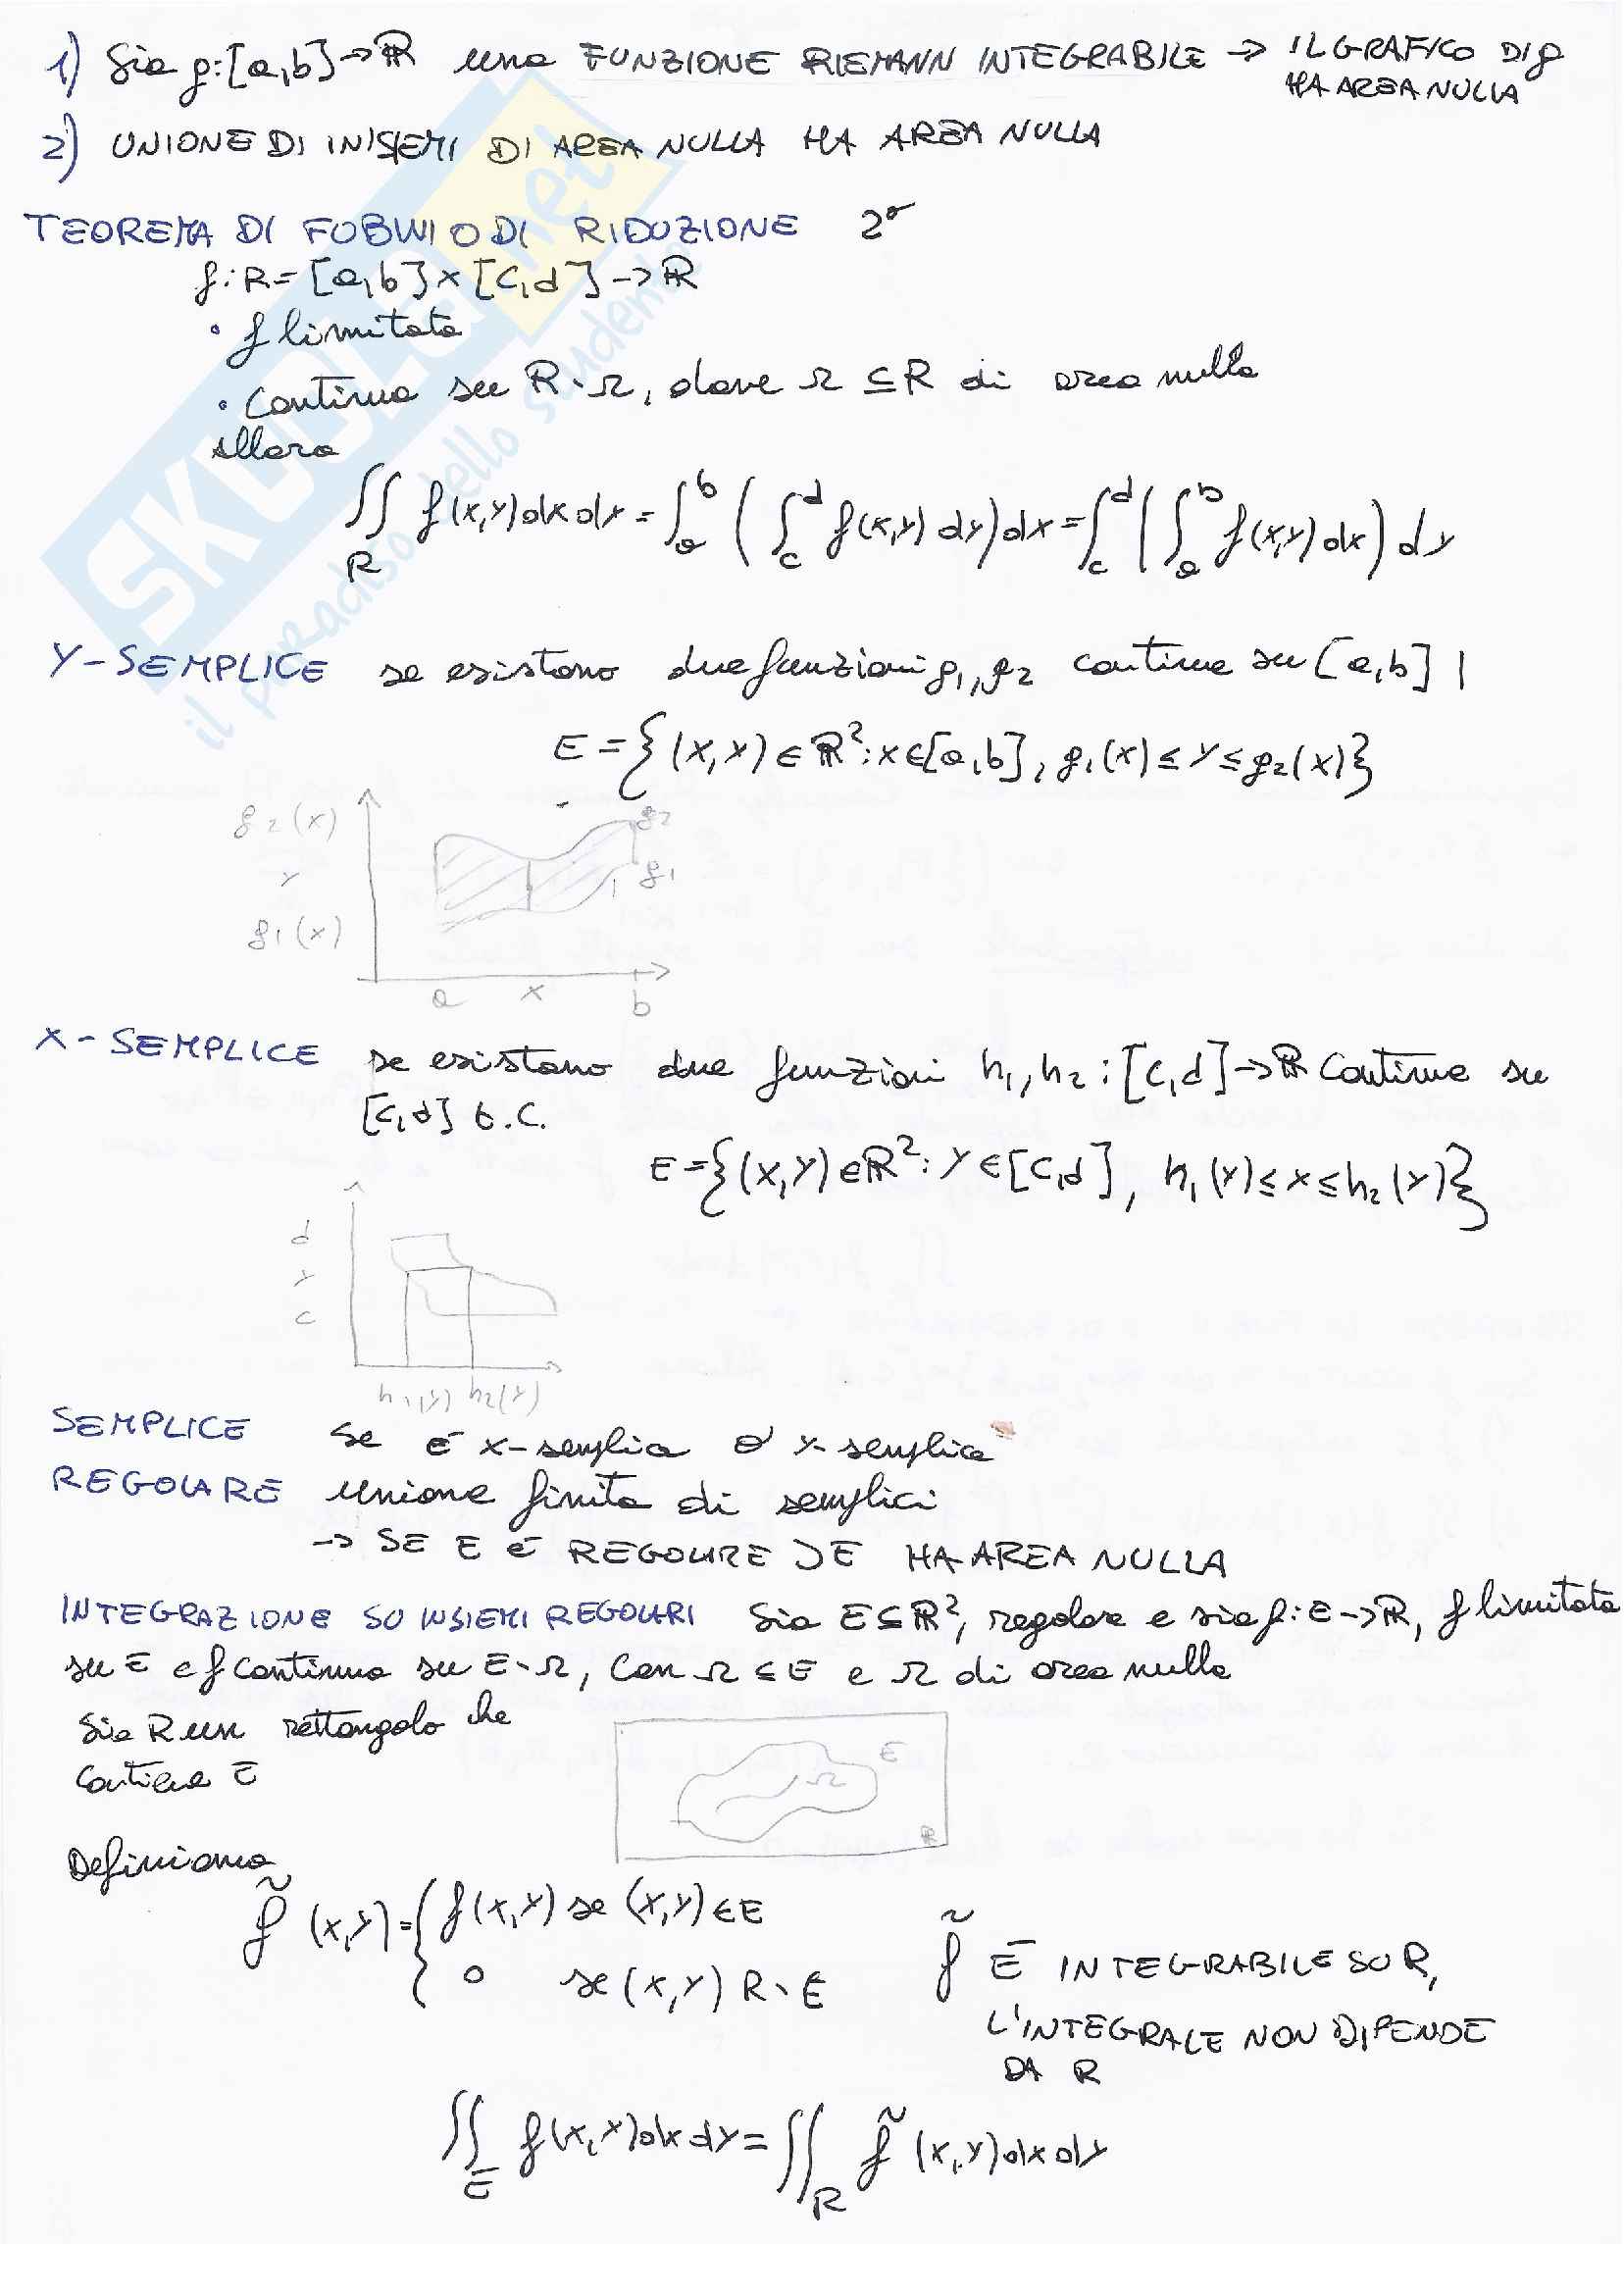 1) Sia g:[a,b]→ℝ una FUNZIONE RIEMANN INTEGRABILE → IL GRAFICO DI g
HA AREA NULLA
2) UNIONE DI INISIEMI DI AREA NULLA HA AREA NULLA
TEOREMA DI FUBINI O DI RIDUZIONE 2°
f:R=[a,b]×[c,d]→ℝ
• f limitata
• Continua su R∖Ω, dove Ω ⊆R di area nulla
allora
∬_R f(x,y)dxdy=∫_a^b(∫_c^d f(x,y)dy)dx=∫_c^d(∫_a^b f(x,y)dx)dy
Y-SEMPLICE se esistono due funzioni g₁,g₂ continue su [a,b] |
E={(x,y)∈ℝ²:x∈[a,b], g₁(x)≤y≤g₂(x)}
g₂(x)
g₂
y
g₁
g₁(x)
a x b
X-SEMPLICE se esistono due funzioni h₁,h₂:[c,d]→ℝ Continue su
[c,d] t.c.
E={(x,y)∈ℝ²:y∈[c,d], h₁(y)≤x≤h₂(y)}
d
y
c
h₁(y) h₂(y)
SEMPLICE Se è x-semplice o y-semplice
REGOLARE unione finita di semplici
→ SE E È REGOLARE ∂E HA AREA NULLA
INTEGRAZIONE SU INSIEMI REGOLARI Sia E⊆ℝ², regolare e sia f:E→ℝ, f limitata
su E e f continua su E∖Ω, con Ω⊆E e Ω di area nulla
Sia R un rettangolo che
contiene E
E
Ω
R
Definiamo
f̃(x,y)={f(x,y) se (x,y)∈E
0 se (x,y) R∖E
f̃ È INTEGRABILE SU R,
L'INTEGRALE NON DIPENDE
DA R
∬_E f(x,y)dxdy=∬_R f̃(x,y)dxdy
SKUOLA.net
il paradiso dello studente